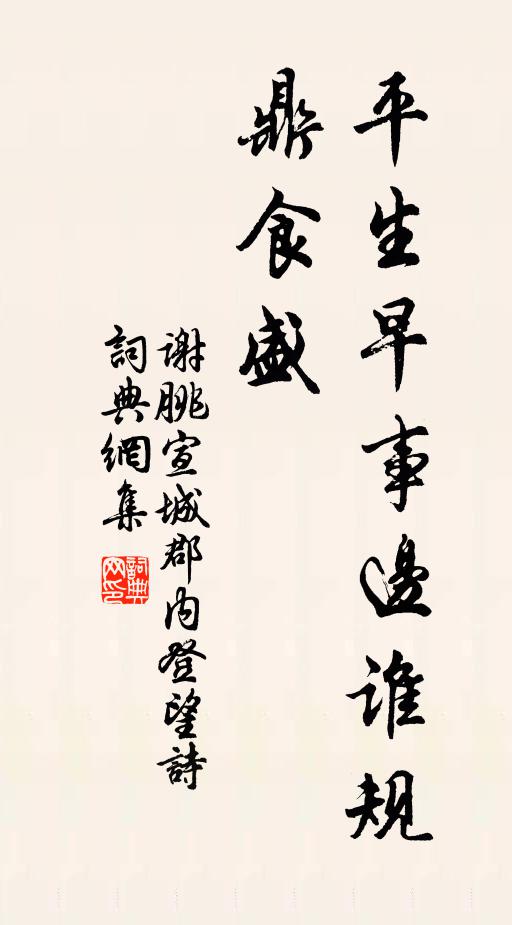 平生早事邊誰規
鼎食盛
謝朓宣城郡内登望詩
詞典網集
詞典
网印